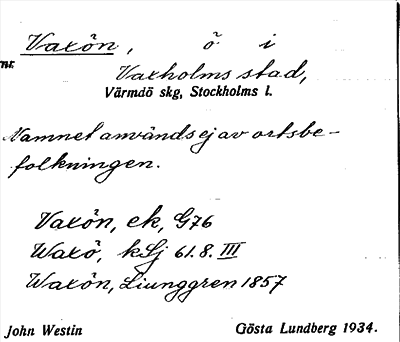 Vaxön, ö i
nr.
Vaxholms stad,
Värmdö skg, Stockholms l.
Namnet användsejav ortsbe-
folkningen.
Vaxön, ek, G76
Waxö, kLj 61.8. III
Waxön, Liunggren 1857
John Westin
Gösta Lundberg 1934.